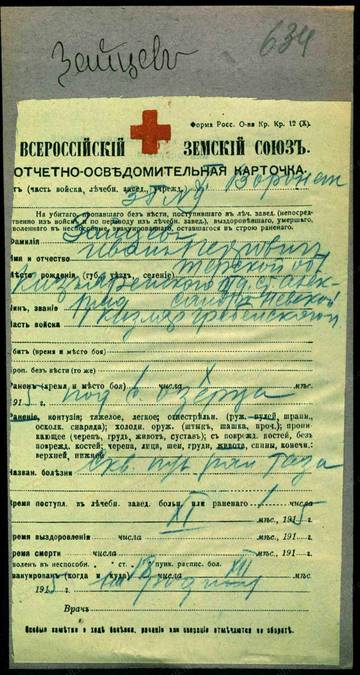 Зайцевъ
634
Форма Росс. О-ва Кр. Кр. 12 (X).
ВСЕРОССІЙСКІЙ ЗЕМСКІЙ СОЮЗЪ.
ОТЧЕТНО-ОСВѢДОМИТЕЛЬНАЯ КАРТОЧКА.
(часть войска, лѣчебн. завед., учрежд.) Воронеж
На убитаго, пропавшаго безъ вѣсти, поступившаго въ лѣч. завед. (непосред-
ственно изъ войскъ и по переводу изъ лѣчебн. завед.), выздоровѣвшаго, умершаго,
уволеннаго въ неспособные, эвакуированнаго, оставшагося въ строю раненаго.
Фамилія Зайцевъ
Имя и отчество Иванъ
Мѣсто рожденія (губ., уѣздъ, селеніе) Терской об
Кизлярскаго
Чинъ, званіе
Часть войска Кизляро-Гребенскаго
Убитъ (время и мѣсто боя)
Проп. безъ вѣсти (то же)
Раненъ (время и мѣсто боя) 1 числа X мѣс.
1915 г. под
Раненіе, контузія: тяжелое, легкое; огнестрѣльн. (руж. пулей, шрапн.,
осколк. снаряда); холодн. оруж. (штыкъ, шашка, проч.); прони-
кающее (черепъ, грудь, животъ, суставъ); съ поврежд. костей, безъ
поврежд. костей; черепа, лица, шеи, груди, живота, спины, конечн.:
верхней, нижней
Назван. болѣзни скв. пул. ран таза
Время поступл. въ лѣчебн. завед. больн. или раненаго 1 числа
XI мѣс., 1915 г.
Время выздоровленія числа мѣс., 191 г.
Время смерти числа мѣс., 191 г.
Уволенъ въ неспособн. ст. пунк. распис. бол.
Эвакуированъ (когда и куда) числа XII мѣс.
1915 г. на родину
Врачъ
Особыя замѣтки о ходѣ болѣзни, раненіи или операціи отмѣчаются на оборотѣ.